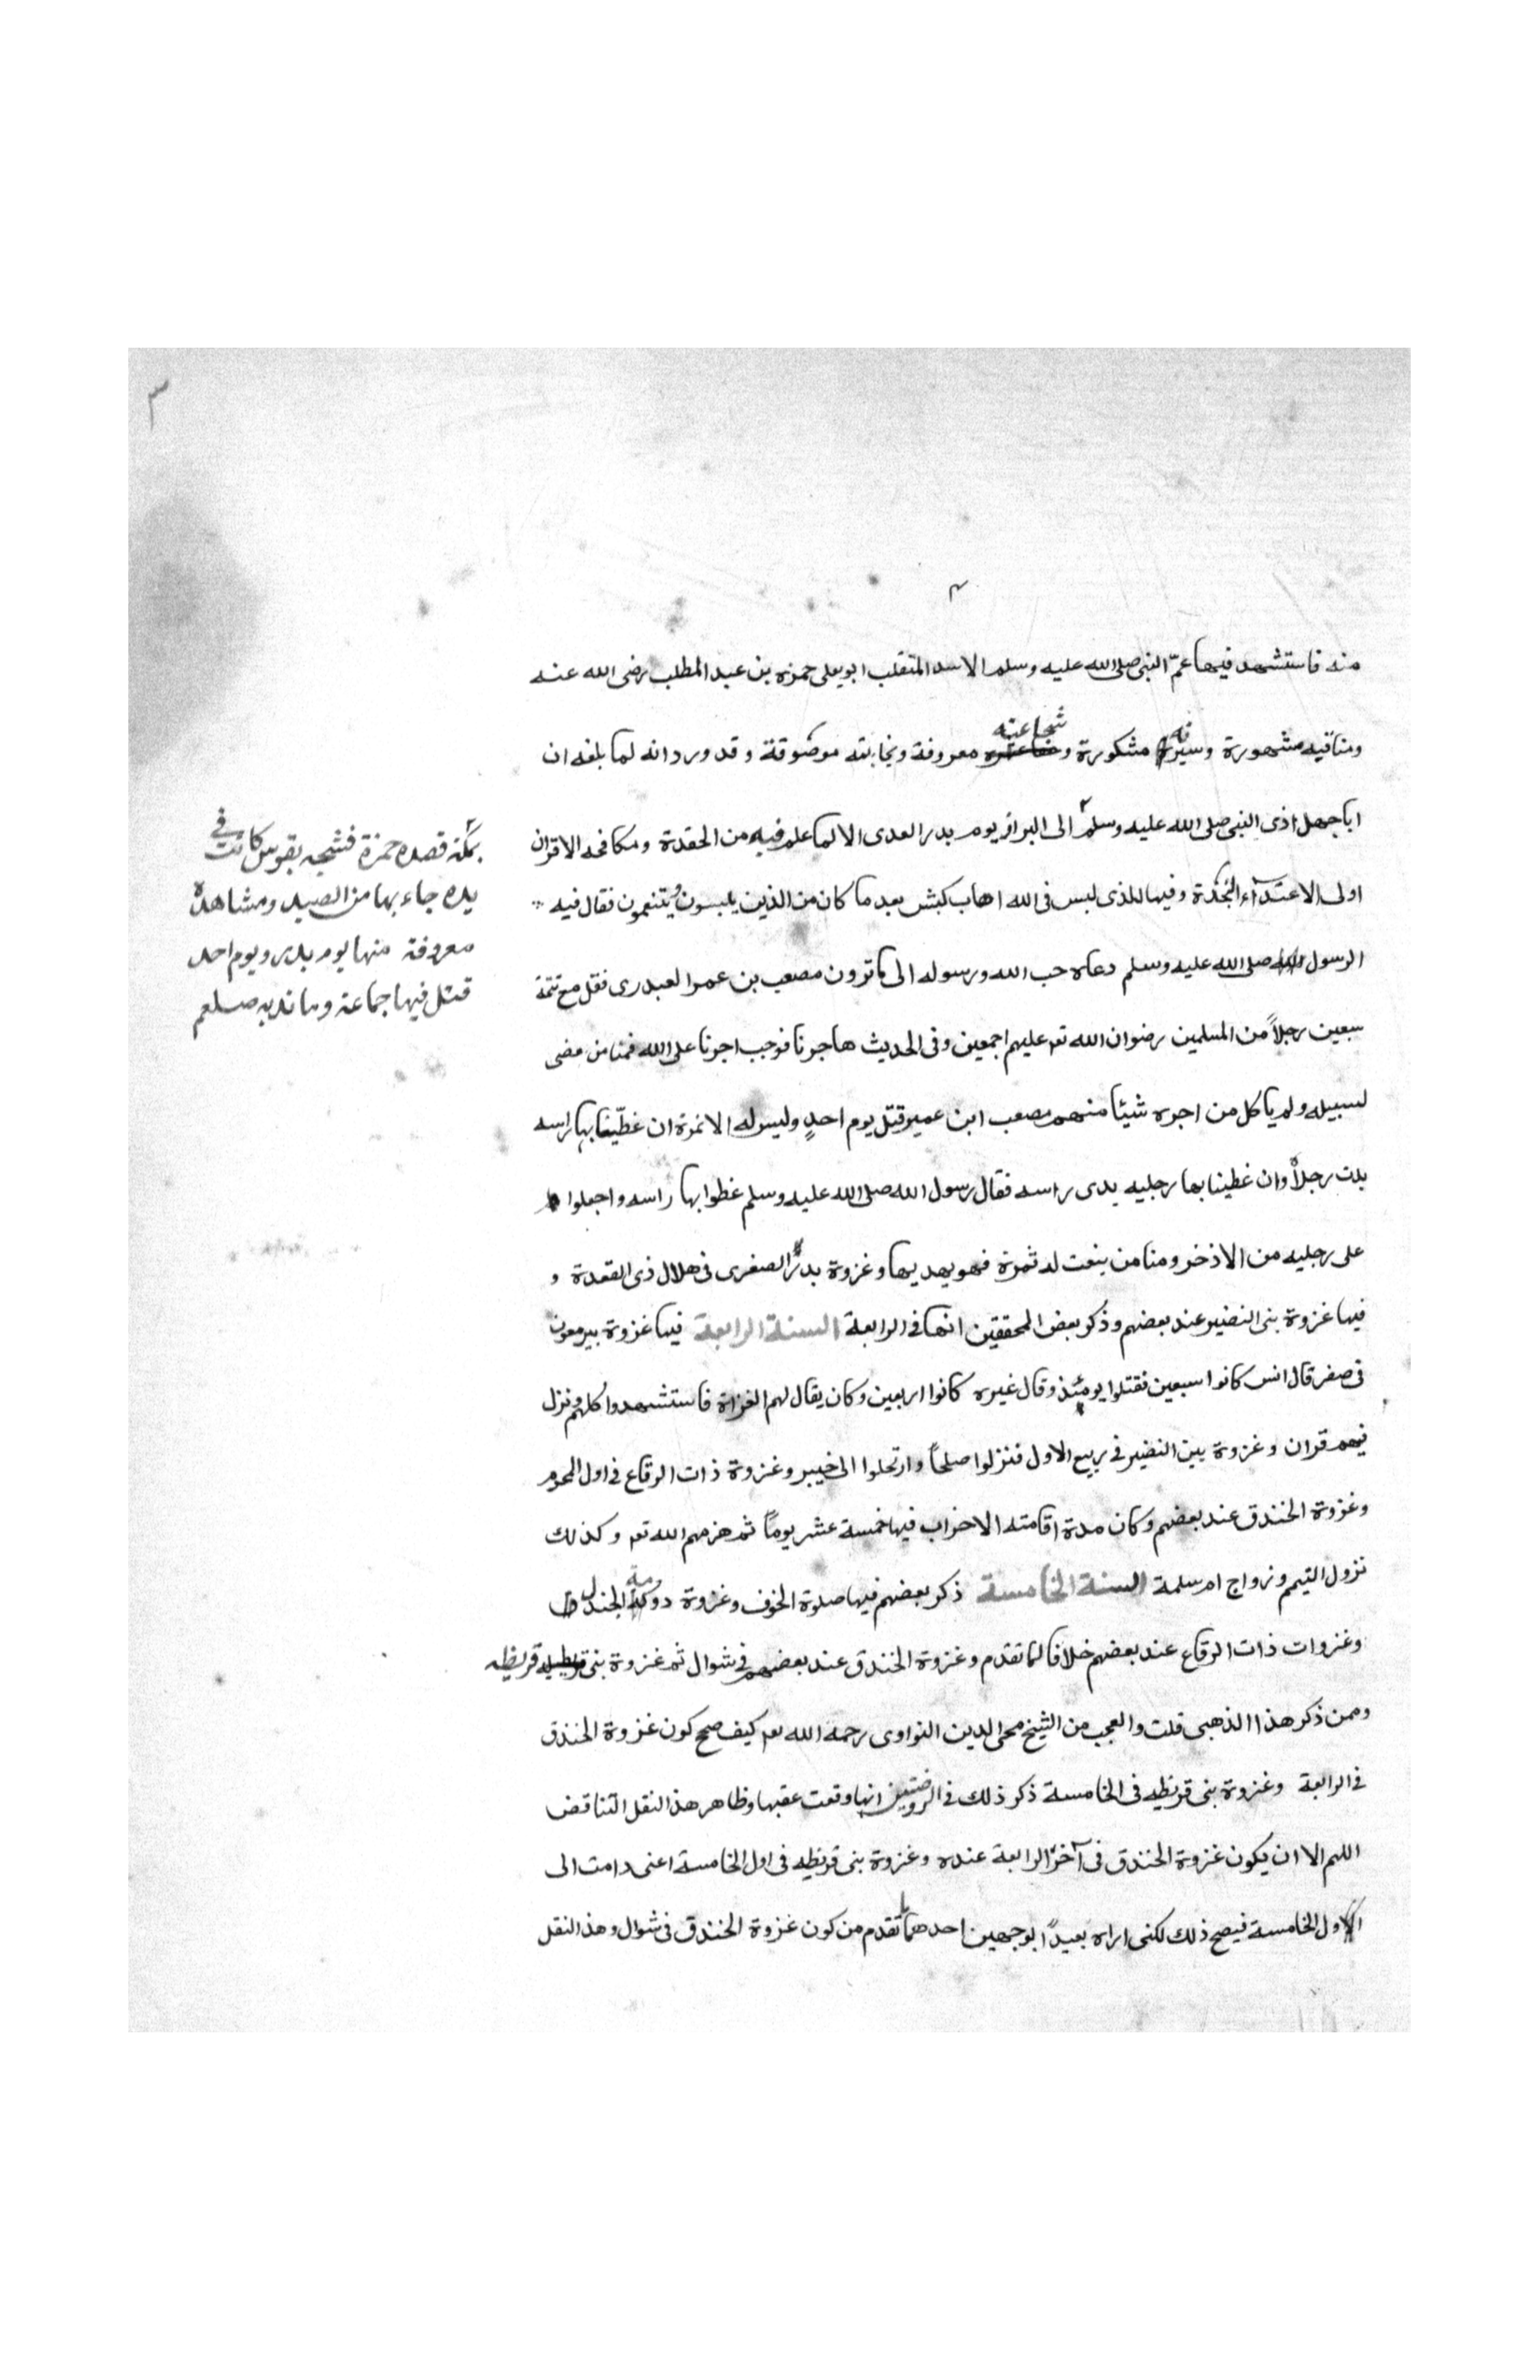 ٣
٣
منه فاستشهد فيها عمّ النبى صلى الله عليه وسلم الاسد المتقلب ابو يعلى حمزه بن عبد المطلب رضى الله عنه
ومناقبه مشهورة وسيرته مشكورة وشجاعته معروفة ونجابته موصوفة وقد ورد انه لما بلغه ان
ابا جهل اذى النبى صلى الله عليه وسلم الى البراز يوم بدر العدى الا لما علم فيه من الحقدة ومكافحه الاقران
بمكة قصده حمزة فشجه بقوس كانت في
يده جاء بها من الصيد ومشاهده
معروفة منها يوم بدر ويوم احد
قتل فيها جماعة وما ندبه صلعم
اولى الاعتدآء النجدة وفيها للذى لبس فى الله اهاب كبش بعد ما كان من الذين يلبسون ويتنعمون فقال فيه
الرسول صلى الله عليه وسلم دعاه حب الله ورسوله الى ما ترون مصعب بن عمر العبدرى فقل مع تتمة
سبعين رجلاً من المسلمين رضوان الله تع عليهم اجمعين وفى الحديث هاجرنا فوجب اجرنا على الله فمنا من مضى
لسبيله ولم ياكل من اجره شيئا منهم مصعب ابن عمير قتل يوم احدٍ وليس له الا نمرة ان غطّينا بها راسه
بدت رجلاه وان غطينا بها رجليه بدى راسه فقال رسول الله صلى الله عليه وسلم غطوا بها راسه واجعلوا
على رجليه من الاذخر ومنا من ينعت له ثمرة فهو يهديها وغزوة بدر الصغرى فى هلال ذى القعدة و
فيها غزوة بنى النضير عند بعضهم وذكر بعض المحققين انها فى الرابعة السنة الرابعة فيها غزوة بير معون
فى صفر قال انس كانوا سبعين فقتلوا يومئذ وقال غيره كانوا اربعين وكان يقال لهم الغزاة فاستشهدوا كلهم ونزل
فيهم قران وغزوة بين النضير فى ربيع الاول فنزلوا صلحاً وارتحلوا الى خيبر وغزوة ذات الرقاع فى اول المحرم
وغزوة الخندق عند بعضهم وكان مدة اقامته الاحزاب فيها خمسة عشر يوماً ثم هزمهم الله تع وكذلك
نزول التيمم وزواج ام سلمة السنة الخامسة ذكر بعضهم فيها صلوة الخوف وغزوة دومة الجندل
وغزوات ذات الرقاع عند بعضهم خلافا لما تقدم وغزوة الخندق عند بعضهم فى شوال ثم غزوة بنى قريظه
وممن ذكر هذا الذهبى قلت والعجب من الشيخ محى الدين النواوى رحمه الله تع كيف صحح كون غزوة الخندق
فى الرابعة وغزوة بنى قريظه فى الخامسة ذكر ذلك فى الروضتين انها وقعت عقبها وظاهر هذا النقل التناقض
اللهم الا ان يكون غزوة الخندق فى آخر الرابعة عنده وغزوة بنى قريظه فى اول الخامسة اعنى دامت الى
الاول الخامسة فيصح ذلك لكنى اراه بعيداً بوجهين احدهما ما تقدم من كون غزوة الخندق فى شوال وهذا النقل